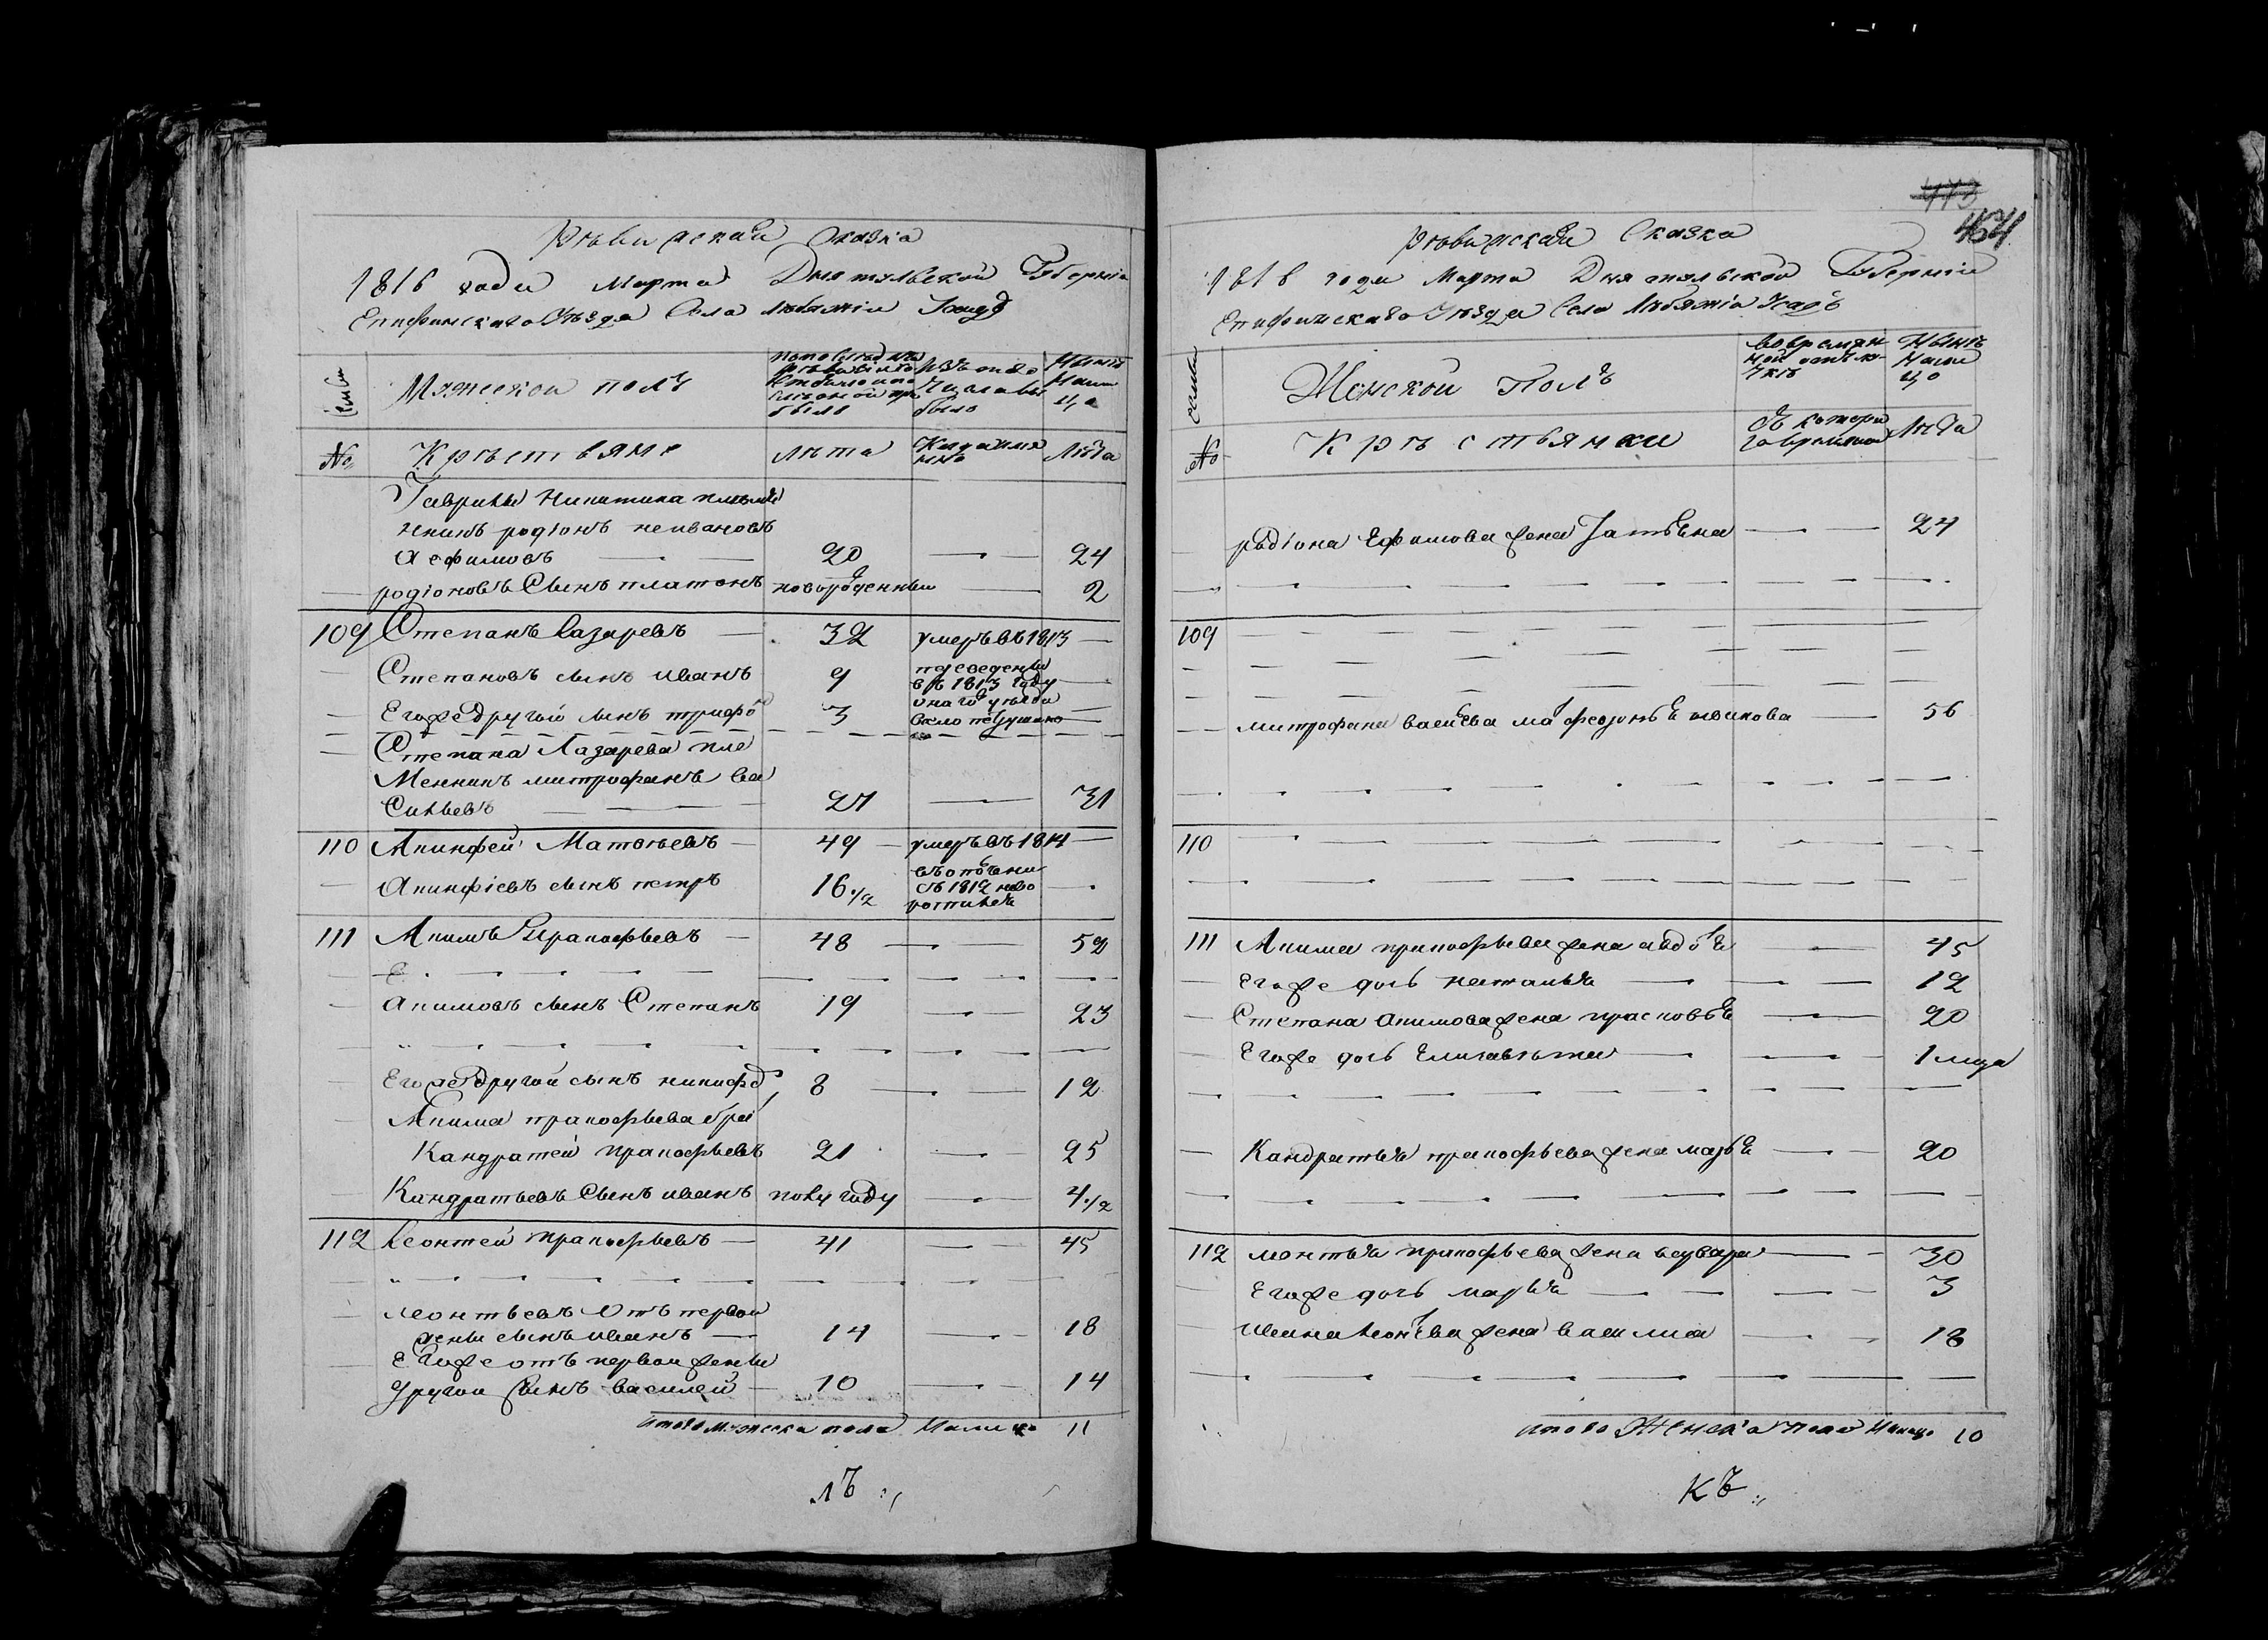 Ревижская Сказка
1816 года Марта Дня тульской Губерніи
Епифанскаго Уезда Села Любяжіи
Семьи
Мужеской полъ
Изъ того
числа вы
было
Ныне
на ли
цо
№
Крестьяне
лета
Когда имя
нно
Лета
Гаврилы Никитина племя
нникъ родіонъ не ивановъ
А ефимовъ 20 24
родіоновъ Сынъ платонъ новорожденный 2
109 Степанъ Лазаревъ 32 умеръ въ 1813
Степановъ сынъ иванъ 9 переведены
въ 1813 году
Его же другой сынъ трифо 3 онаго уезда
Степана Лазарева пле
Менникъ митрофанъ ва
Сильевъ 27 31
110 Акинфей Матвеевъ 49 умеръ въ 1814
Акинфіевъ сынъ петръ 16 1/2
111 Акимъ Пракофьевъ 48 52
Акимовъ сынъ Степанъ 19 23
Его же другой сынъ никифо 8 12
Акима пракофьева бра
Кандратей пракофьевъ 21 25
Кандратьевъ Сынъ иванъ полу году 4 1/2
112 Леонтей пракофьевъ 41 45
Леонтьевъ Отъ первой
жены сынъ иванъ 14 18
Его же отъ первой жены
другой Сынъ василей 10 14
итого мужеска пола Налицо 11
лъ
473
464
Ревижская Сказка
1816 года Марта Дня тульской Губерніи
Епифанскаго Уезда Села Любяжіа
семьи
Женской Полъ
Вовремян
ной отлу
чке
Ныне
нали
цо
№
Крестьянки
Съ которо
го времени
Лета
радіона Ефимова жена Татьена 24
109
митрофана васильева ма 56
110
111 Акима пракофьева жена авдо 45
Его же дочь наталья 12
Степана акимова жена прасковье 20
Его же дочь Елизавета 1 года
Кандратья пракофьева жена марье 20
112 леонтья пракофьева жена 30
Его же дочь марья 3
ивана леонтева жена василиса 18
итого Женска пола Налицо 10
къ